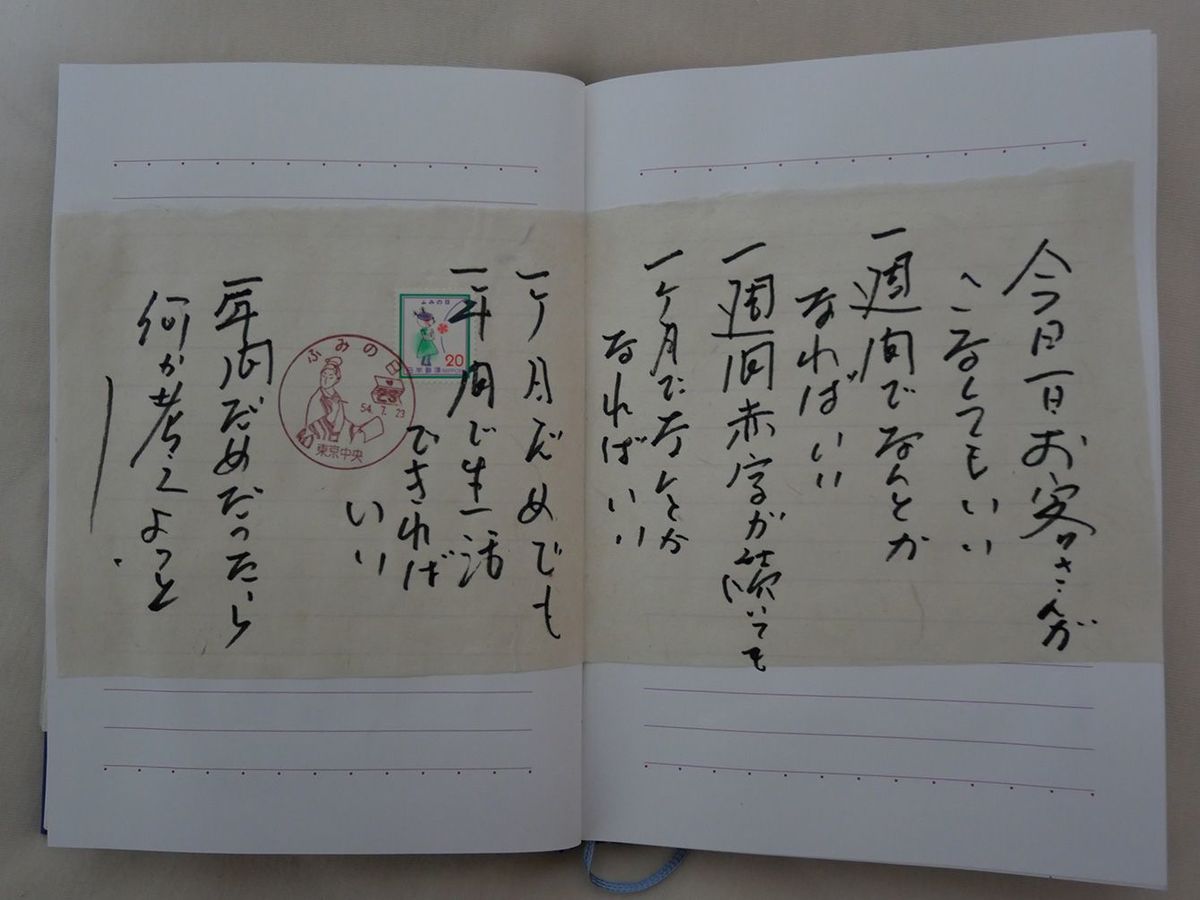 今日一日お客さんが
こなくてもいい
一週間でなんとか
なればいい
一週間赤字が続いても
一ヶ月でなんとか
なればいい
一ヶ月だめでも
一年間で生活
できれば
いい
一年間だめだったら
何か考えよっと
ふみの日
20
日本郵便 NIPPON
ふみの
54.7.23
東京中央